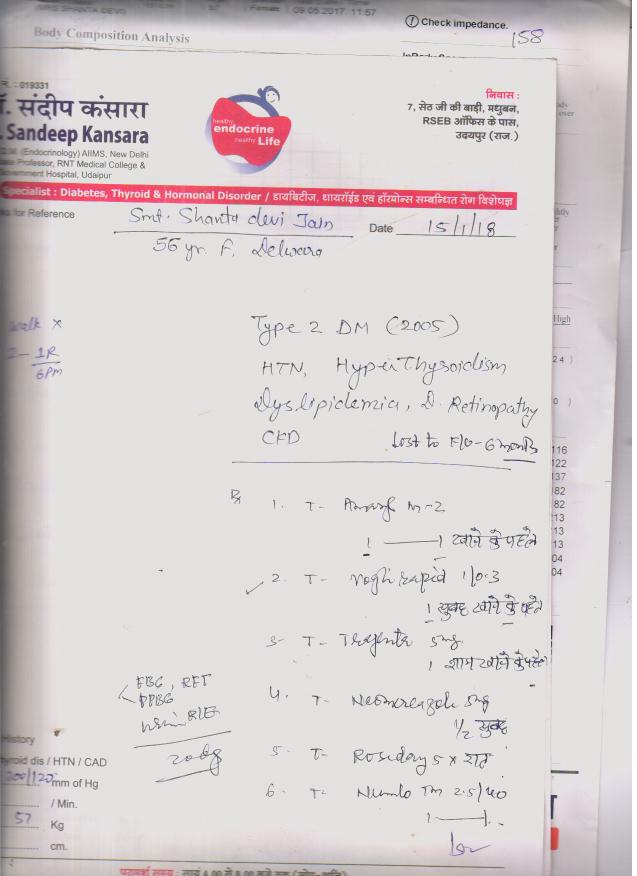 (MRS SHANTA DEVI)
Female
09.05.2017. 11:57
Body Composition Analysis
① Check impedance.
158
: 019331
. संदीप कंसारा
. Sandeep Kansara
D.M. (Endocrinology) AIIMS, New Delhi
Professor, RNT Medical College &
Government Hospital, Udaipur
healthy
endocrine
healthy Life
निवास :
7, सेठ जी की बाड़ी, मधुबन,
RSEB ऑफिस के पास,
उदयपुर (राज.)
Specialist : Diabetes, Thyroid & Hormonal Disorder / डायबिटीज, थायरॉईड एवं हॉरमोन्स सम्बन्धित रोग विशेषज्ञ
for Reference
Smt. Shanta devi Jain
Date 15/1/18
56 yr. F, Delwara
walk x
2 - 1R
6PM
Type 2 DM (2005)
HTN, HyperThyroidism
Dyslipidemia, D. Retinopathy
CKD Lost to F/U - 6 months
High
116
122
137
82
82
13
13
04
04
Rx
1. T- M-2
1 — 1 खाने के पहले
2. T- rapid 1/0.3
1 सुबह खाने के पहले
3- T- Trajenta 5mg
1 शाम खाने के पहले
FBG, RFT
PPBG
4. T- Neomercazole 5mg
1/2 सुबह
5- T- Roseday 5 x रात
6. T- Numlo TM 2.5/40
1 —
History
dis / HTN / CAD
200/120 mm of Hg
/ Min.
57 Kg
cm.
परामर्श समय :